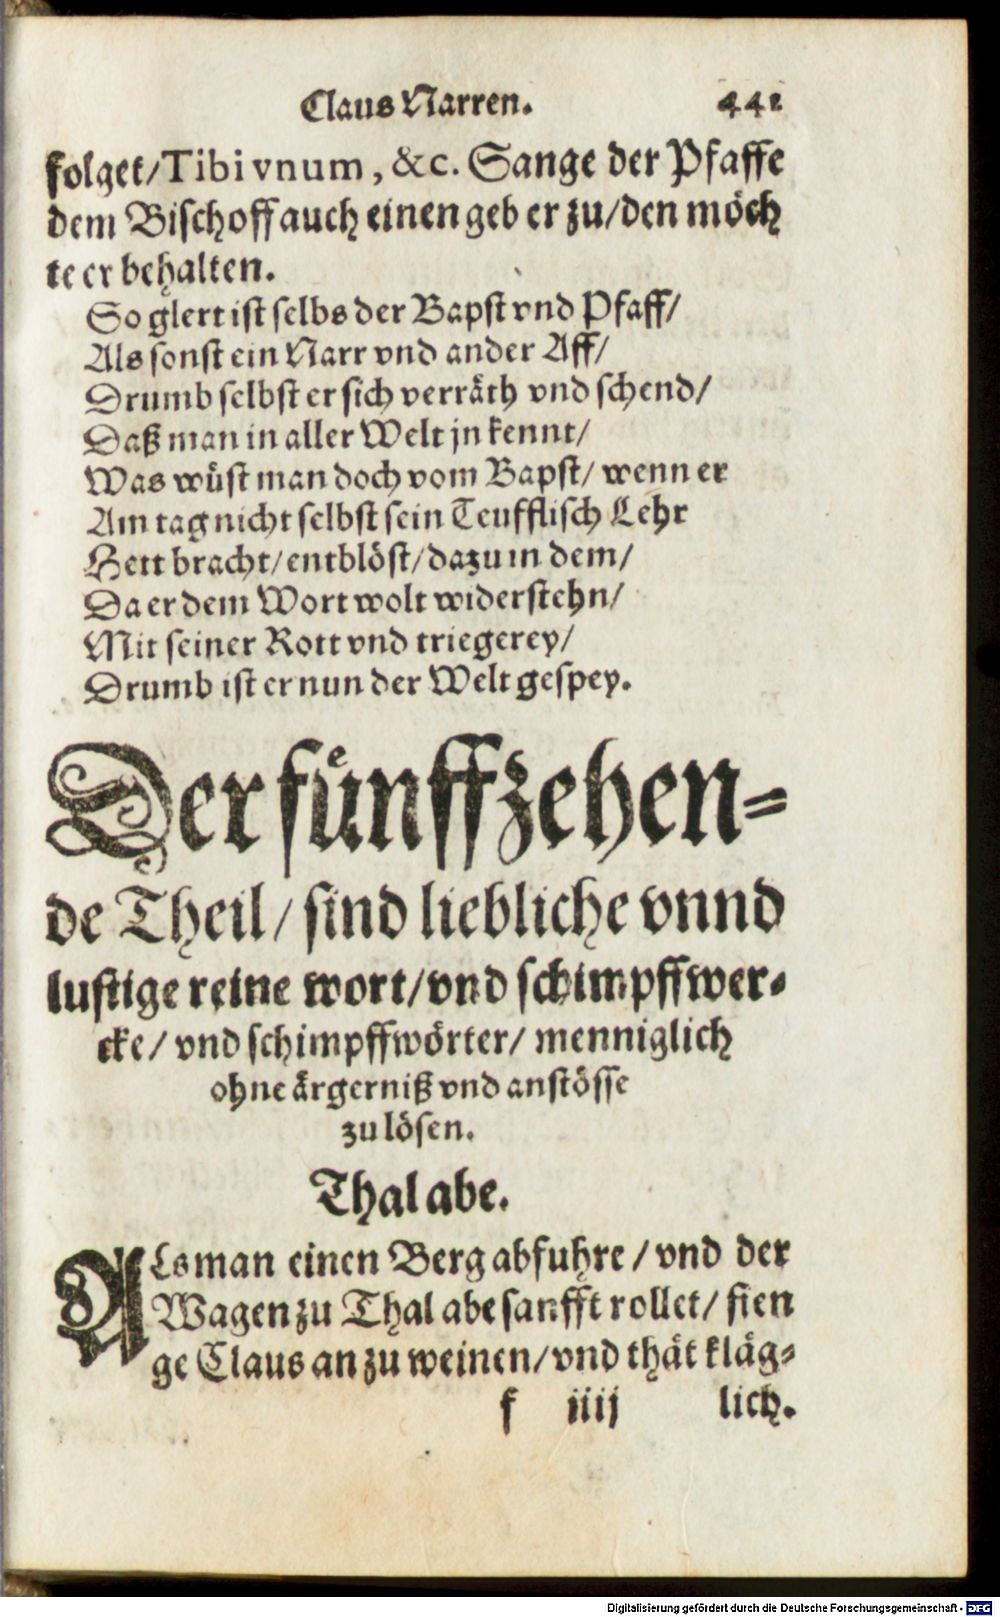 Claus Narren. 441
folget/Tibi vnum, &c. Sange der Pfaffe
dem Bischoff auch einen geb er zu/den möch
te er behalten.
So glert ist selbs der Bapst vnd Pfaff/
Als sonst ein Narr vnd ander Aff/
Drumb selbst er sich verräth vnd schend/
Daß man in aller Welt jn kennt/
Was wüst man doch vom Bapst/ wenn er
Am tag nicht selbst sein Teufflisch Lehr
Hett bracht/entblöst/dazu in dem/
Da er dem Wort wolt widerstehn/
Mit seiner Rott vnd triegerey/
Drumb ist er nun der Welt gespey.
Der fünffzehen-
de Theil/ sind liebliche vnnd
lustige reine wort/vnd schimpffwer-
cke/ vnd schimpffwörter/ menniglich
ohne ärgerniß vnd anstösse
zu lösen.
Thal abe.
ALs man einen Berg abfuhre/ vnd der
Wagen zu Thal abe sanfft rollet/ fien
ge Claus an zu weinen/vnd thät kläg-
f iiij lich.
Digitalisierung gefördert durch die Deutsche Forschungsgemeinschaft - DFG